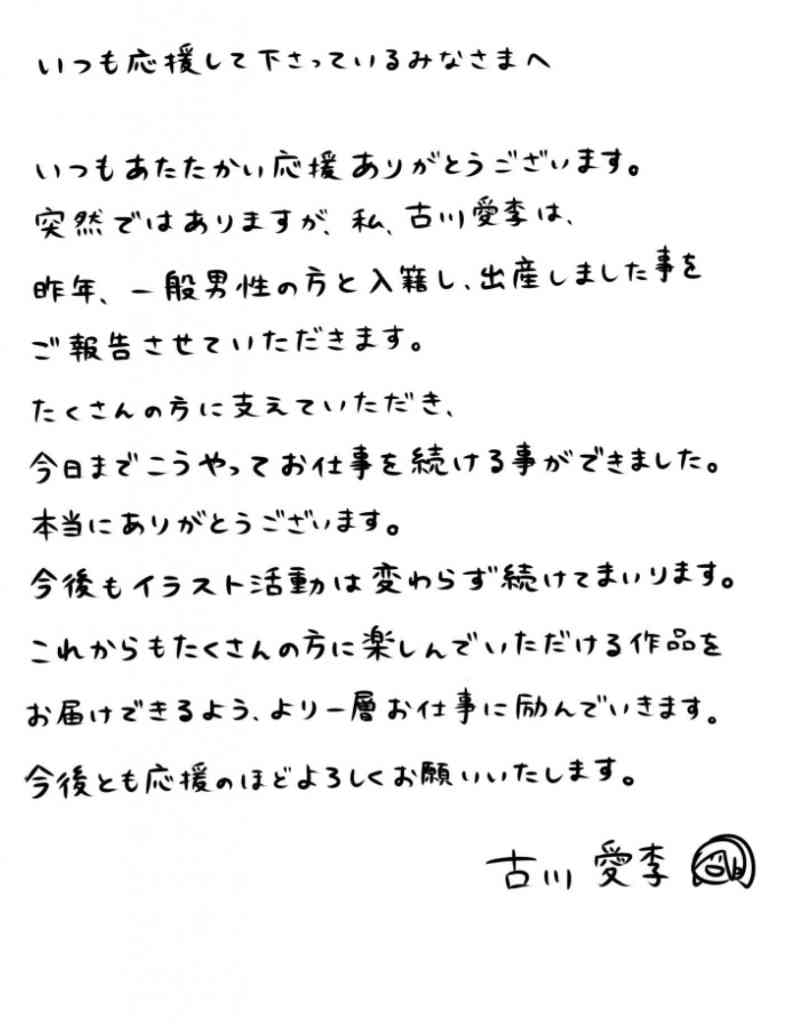 いつも応援して下さっているみなさまへ
いつもあたたかい応援ありがとうございます。
突然ではありますが、私、古川愛李は、
昨年、一般男性の方と入籍し、出産しました事を
ご報告させていただきます。
たくさんの方に支えていただき、
今日までこうやってお仕事を続ける事ができました。
本当にありがとうございます。
今後もイラスト活動は変わらず続けてまいります。
これからもたくさんの方に楽しんでいただける作品を
お届けできるよう、より一層お仕事に励んでいきます。
今後とも応援のほどよろしくお願いいたします。
古川 愛李